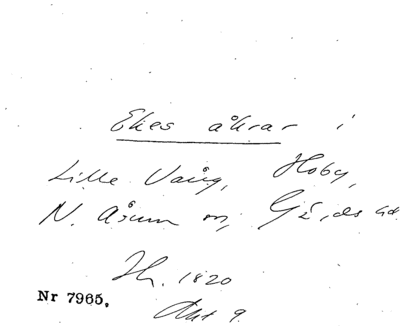 Ekes åkrar i
Lille Vång, Hoby,
N. Åsum sn, Gärds hd.
Hr. 1820
Nr 7965.
Akt 9.